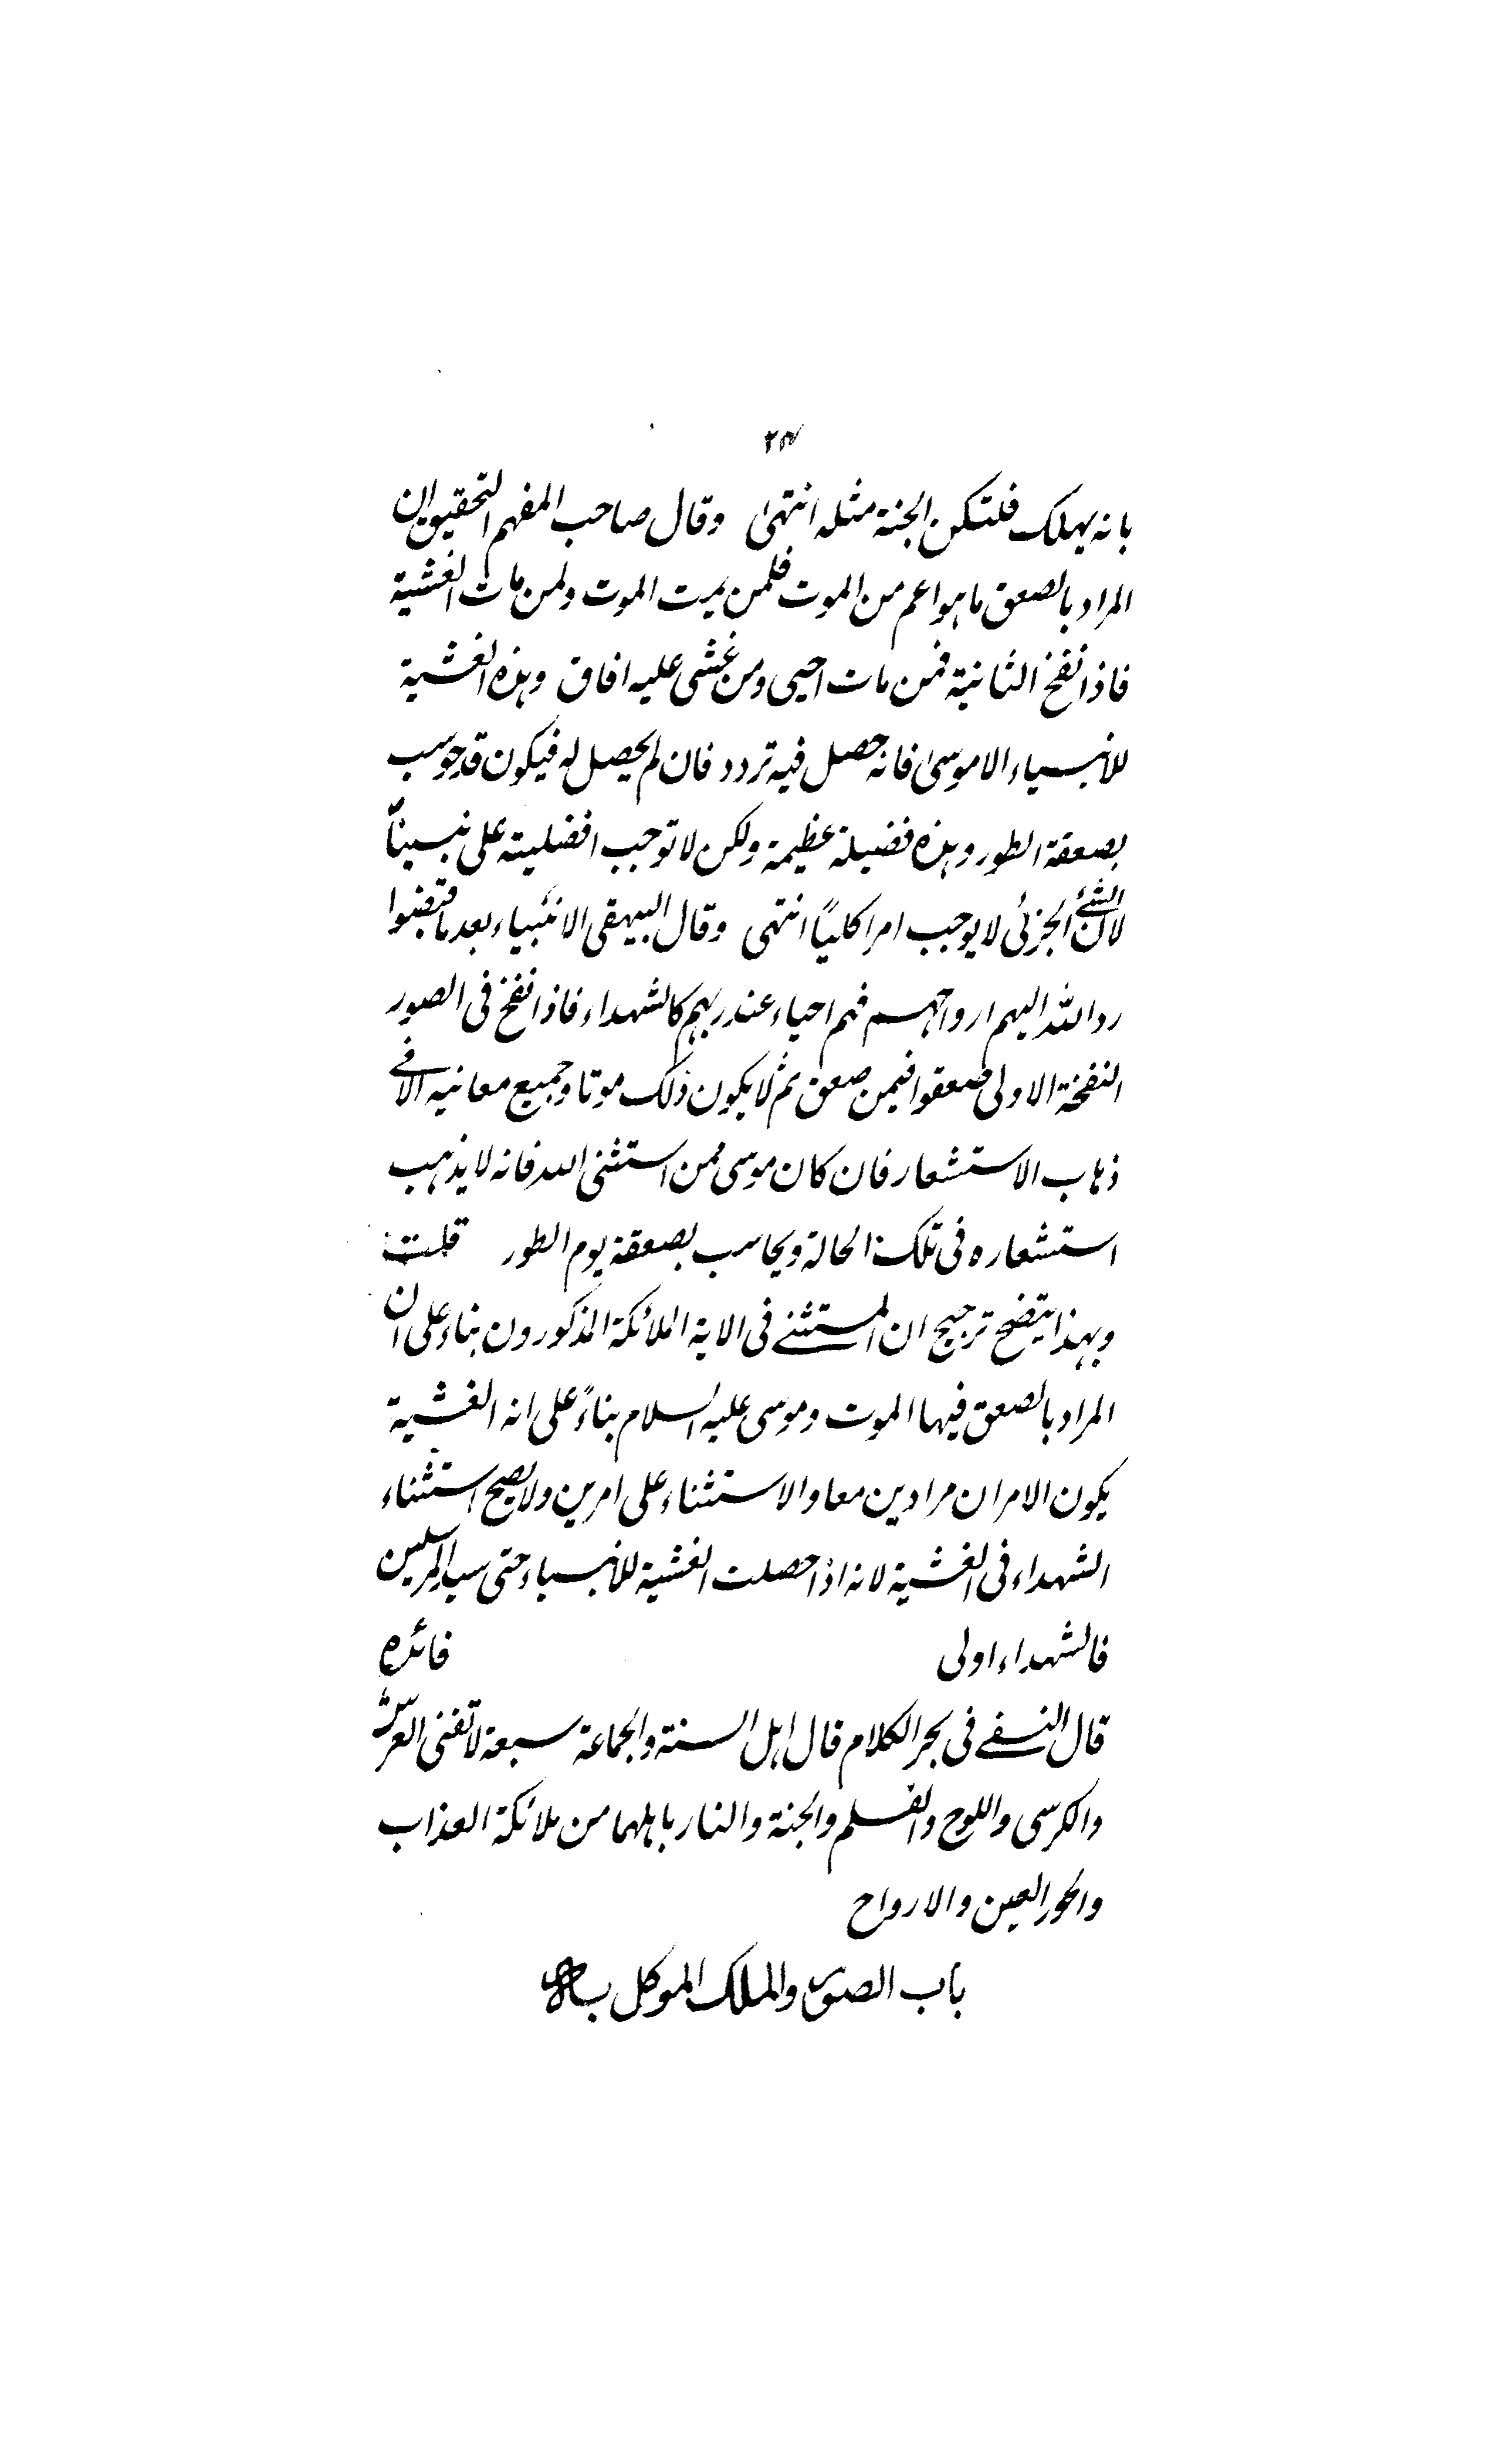 ۲۴
بانه يهلك فلتكن الجنة مثله انتهى وقال صاحب المفهم التحقيق ان
المراد بالصعق ما هو اعم من الموت فلمن لم يمت الموت ولمن مات الغشية
فاذا نفخ الثانية فمن مات احيى ومن غشى عليه افاق وهذه الغشية
للانبياء الا موسى فانه حصل فيه تردد فان لم يحصل له فيكون قد حوسب
بصعقة الطور وهذه فضيلة عظيمة ولكن لا توجب افضليته على نبينا
لان الشئ الجزئى لا يوجب امرا كليًا انتهى وقال البيهقى الانبياء بعد ما قبضوا
رد الله اليهم ارواحهم فهم احياء عند ربهم كالشهداء فاذا نفخ فى الصور
النفخة الاولى صعقوا فيمن صعق ثم لا يكون ذلك موتا وجميع معانيه الا فى
ذهاب الاستشعار فان كان موسى ممن استثنى الله فانه لا يذهب
استشعاره فى تلك الحالة ويحاسب بصعقة يوم الطور قلت
وبهذا يتضح ترجيح ان المستثنى فى الاية الملائكة المذكورون بناء على ان
المراد بالصعق فيها الموت وموسى عليه السلام بناءً على انه الغشية
يكون الامران مرادين معا والاستثناء على امرين ولا يصح استثناء
الشهداء فى الغشية لانه اذا حصلت الغشية للانبياء حتى سيد المرسلين
فالشهداء اولى فائده
قال النسفى فى بحر الكلام قال اهل السنة والجماعة سبعة لا تفنى العرش
والكرسى واللوح والقلم والجنة والنار باهلهما من ملائكة العذاب
والحور العين والارواح
باب الصور والملك الموكل به